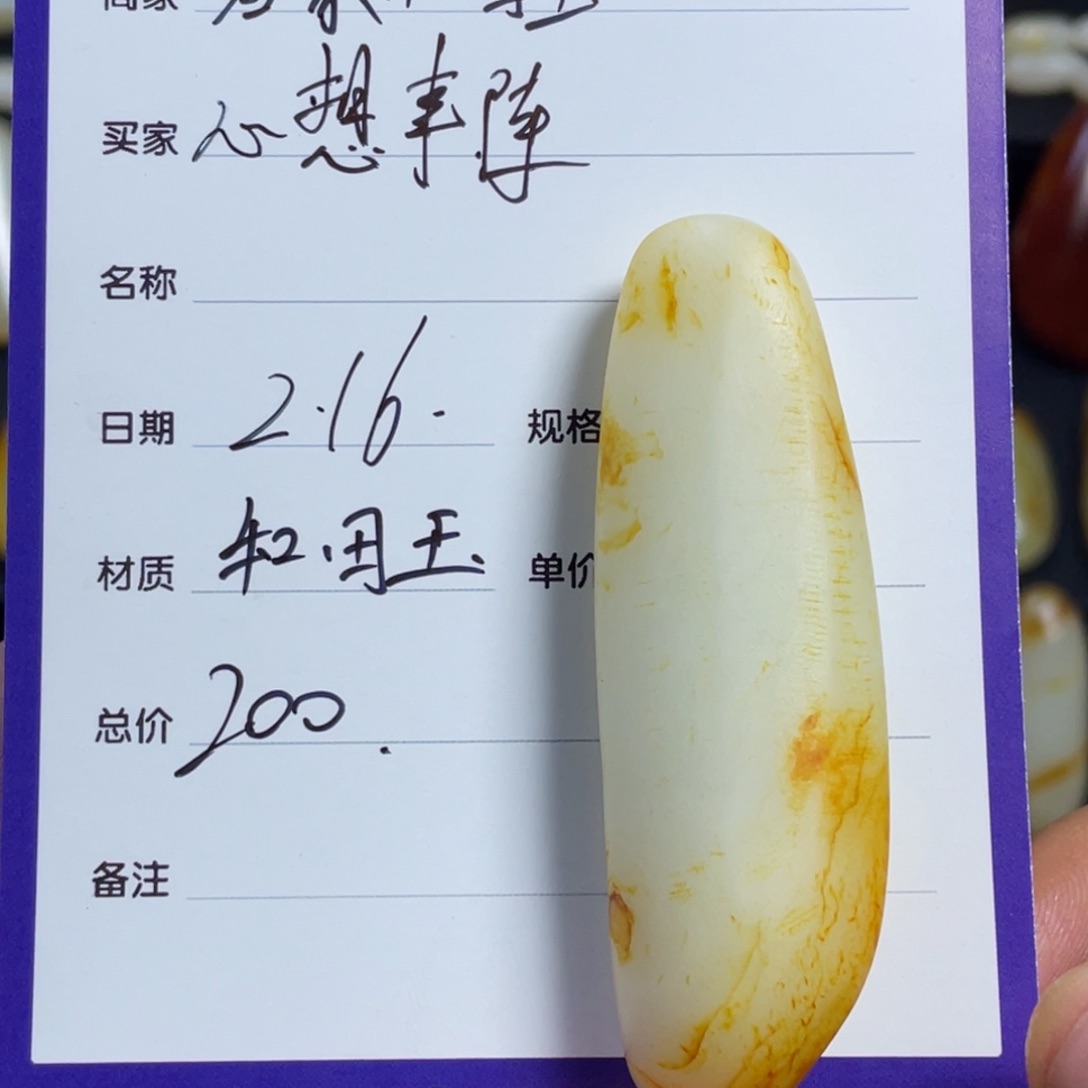 商家
买家 心想事阵
名称
日期 2.16. 规格
材质 和田玉 单价
总价 200.
备注